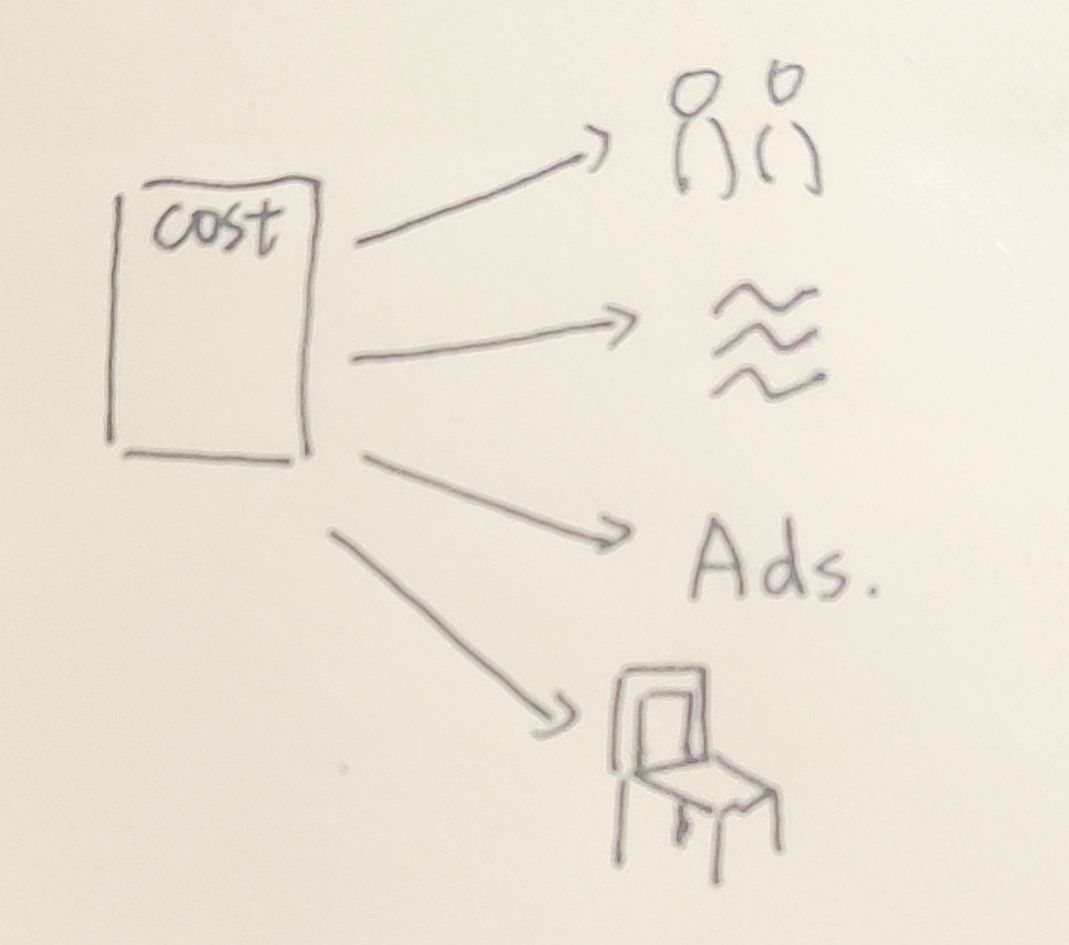 cost
Ads.